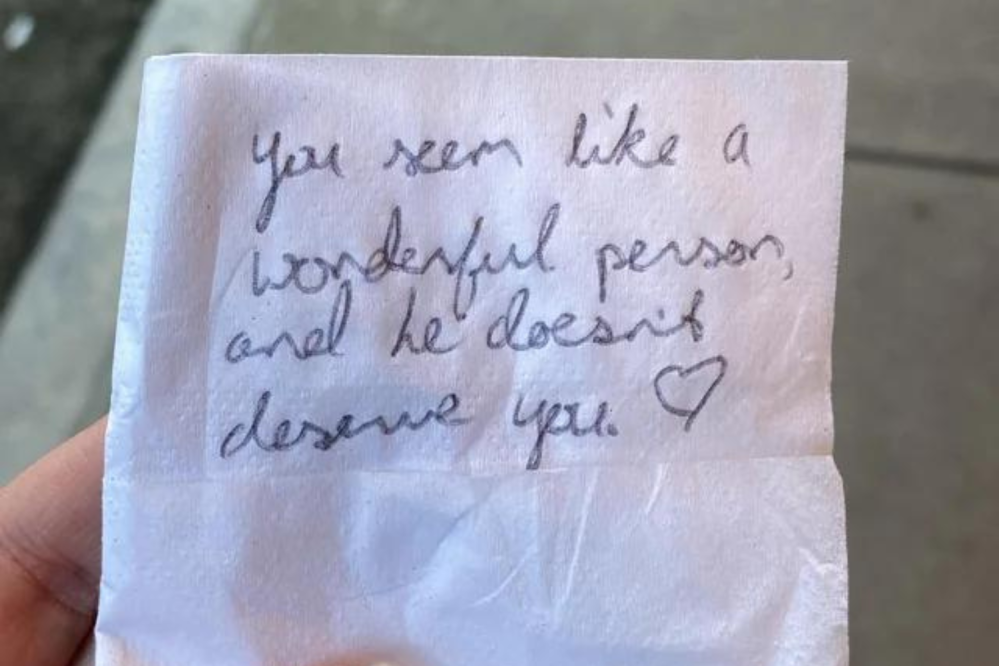 you seem like a
wonderful person,
and he doesn't
deserve you. ♡